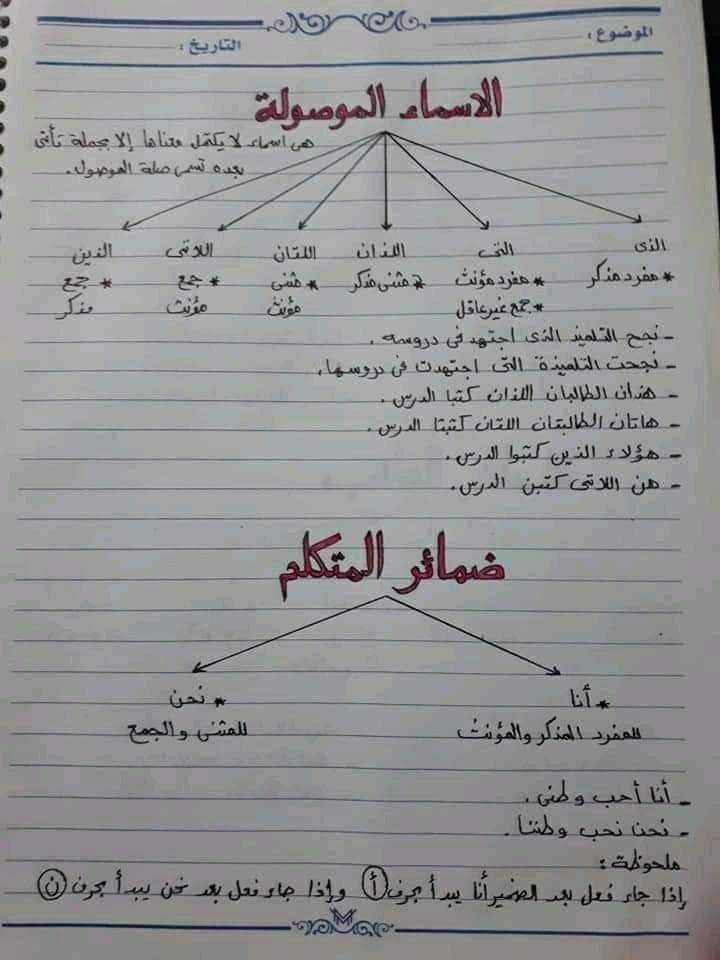 الموضوع :
التاريخ :
الاسماء الموصولة
هى اسماء لا يكتمل معناها إلا بجملة تأتى
بعده تسمى صلة الموصول .
الذى التى اللذان اللتان اللاتى الذين
* مفرد مذكر * مفرد مؤنث * مثنى مذكر * مثنى * جمع * جمع
* جمع غير عاقل مؤنث مؤنث مذكر
- نجح التلميذ الذى اجتهد فى دروسه .
- نجحت التلميذة التى اجتهدت فى دروسها .
- هذان الطالبان اللذان كتبا الدرس .
- هاتان الطالبتان اللتان كتبتا الدرس .
- هؤلاء الذين كتبوا الدرس .
- هن اللاتى كتبن الدرس .
ضمائر المتكلم
* أنا * نحن
للمفرد المذكر والمؤنث للمثنى والجمع
- أنا أحب وطنى .
- نحن نحب وطننا .
ملحوظة :
إذا جاء فعل بعد الضمير أنا يبدأ بحرف أ وإذا جاء فعل بعد نحن يبدأ بحرف ن